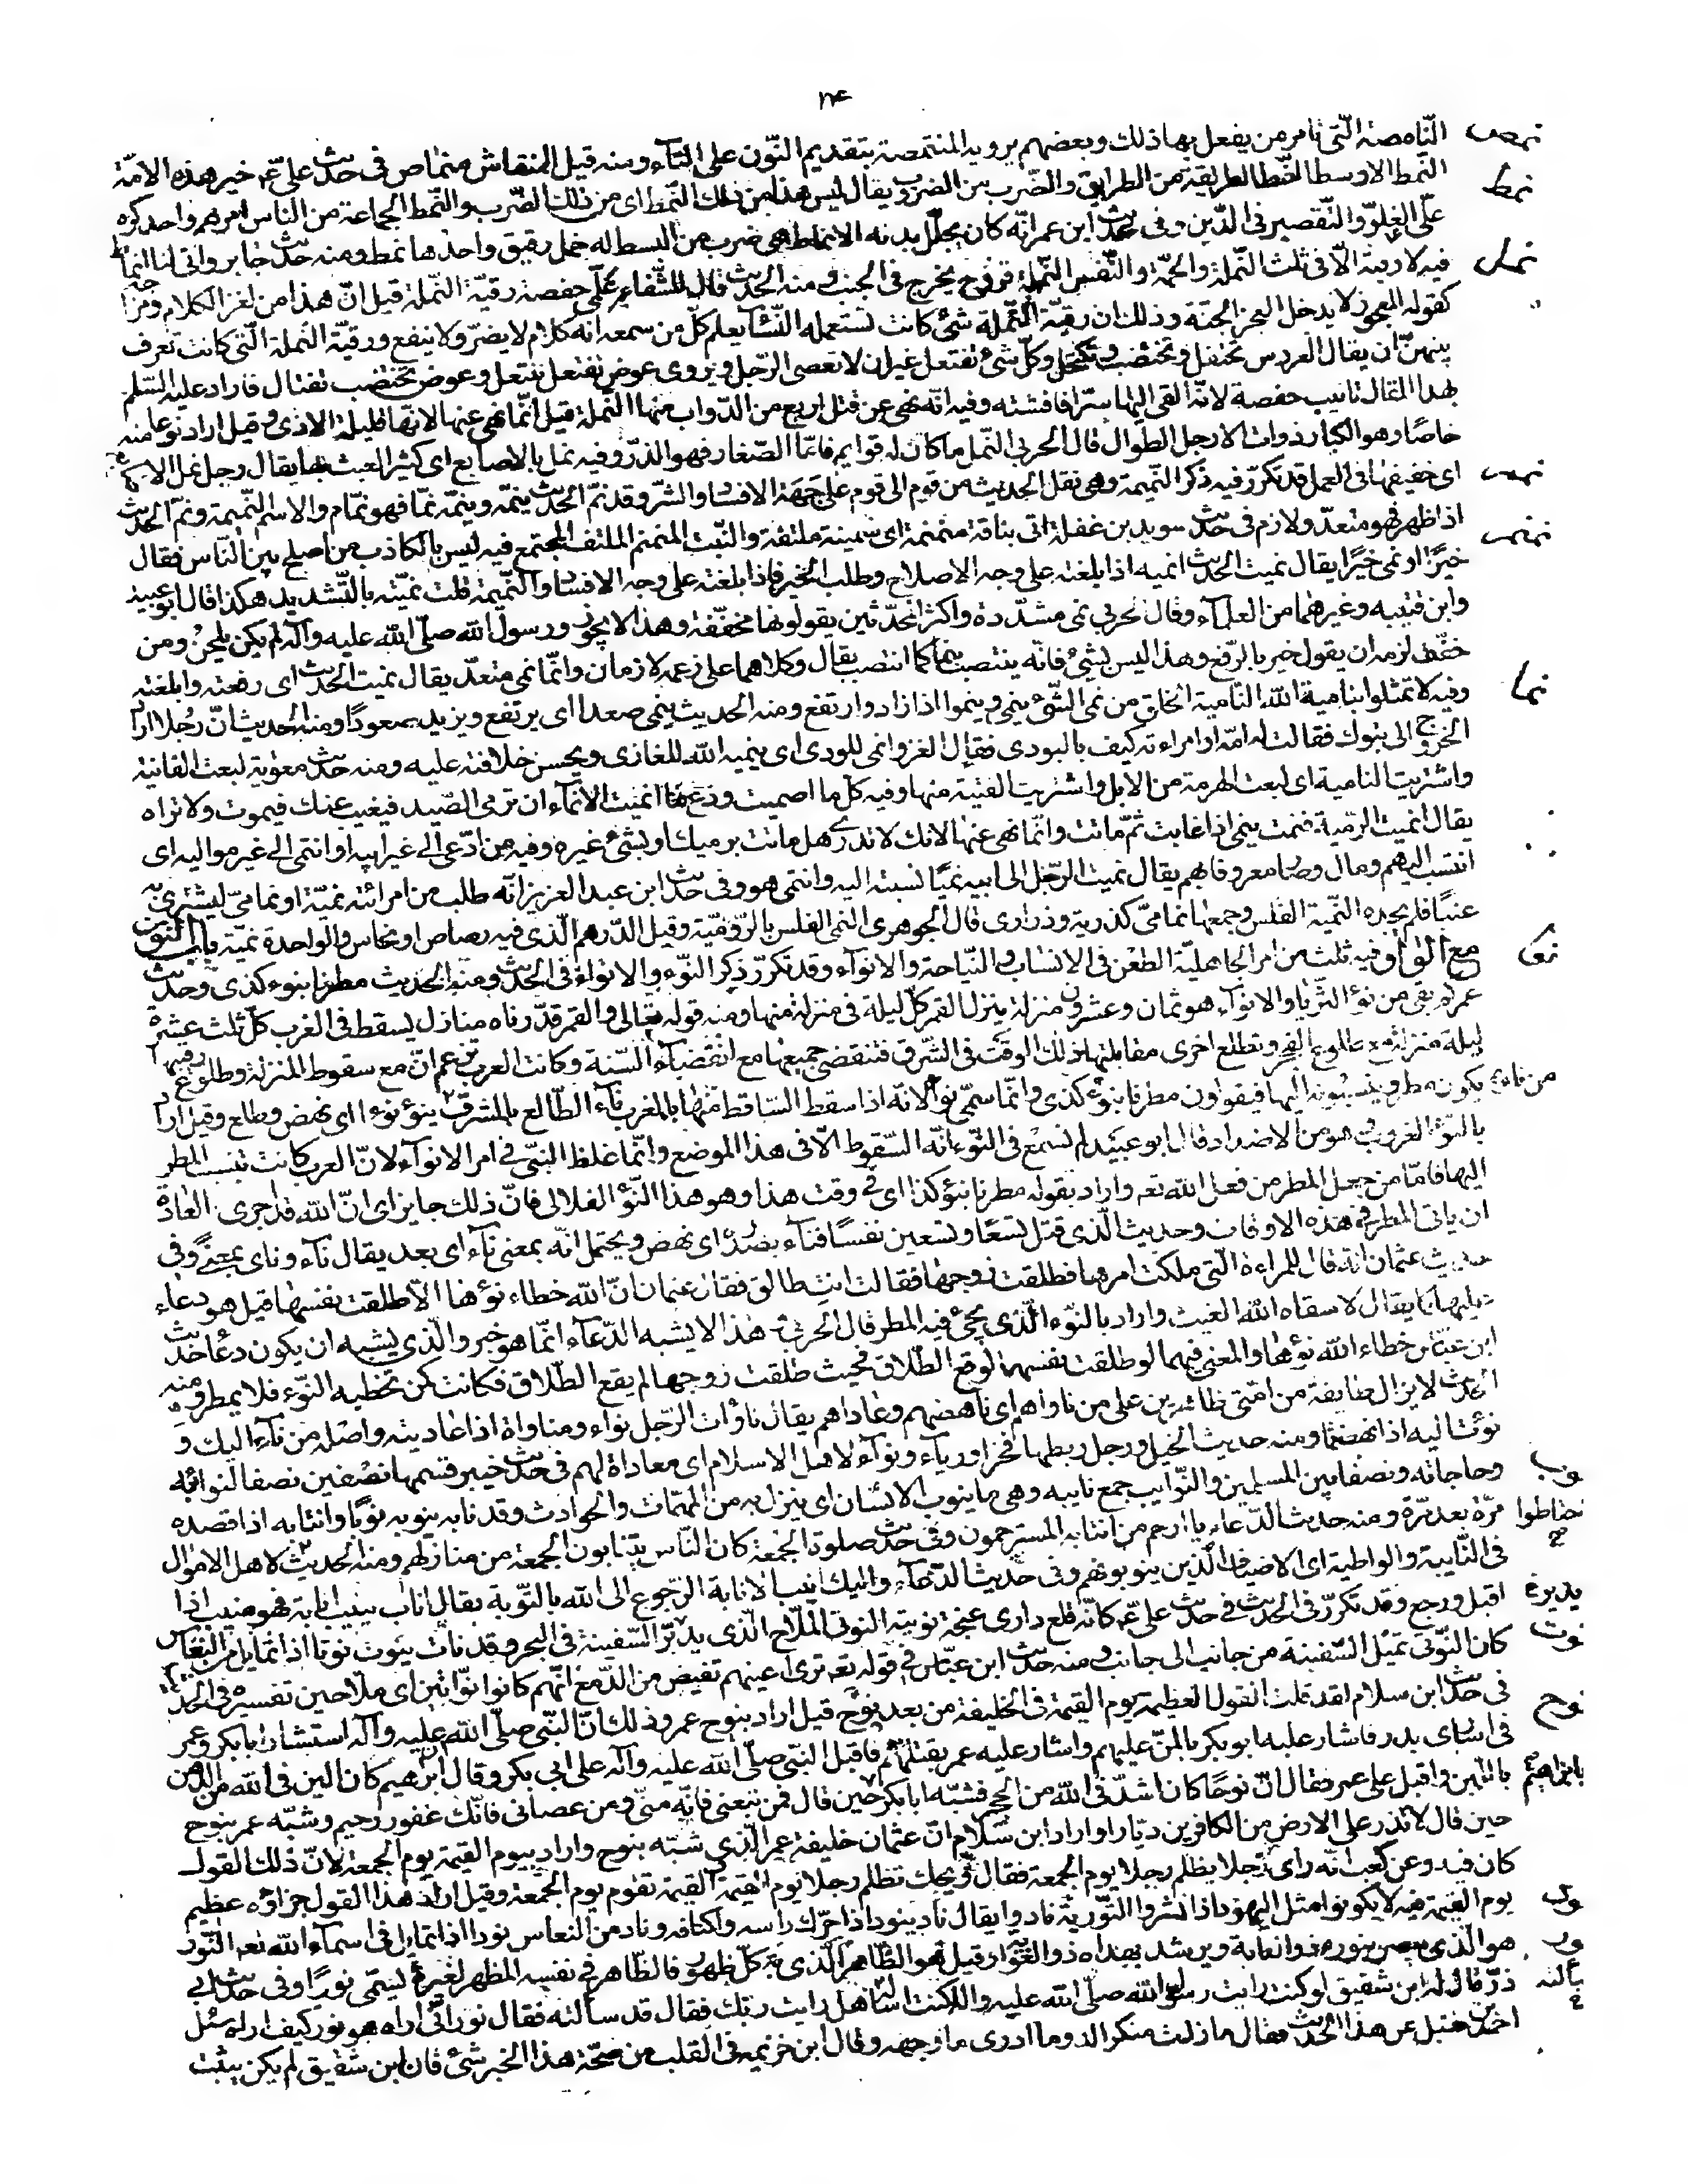 النّامصة الّتى تامر من يفعل بها ذلك وبعضهم يرويه المنتمصة بتقديم النّون على التّاء ومنه قيل للمنقاش منماص فى حديث علىّ عم خير هذه الامّة
النّمط الاوسط النّمط الطريقة من الطرايق والضّرب من الضروب يقال ليس هذا من ذلك النّمط اى من ذلك الضّرب والنّمط الجماعة من الناس امرهم واحد كره
علىّ الغلوّ والتّقصير فى الدّين وفى حديث ابن عمر انّه كان يجلّل بدنه الانماط هى ضرب من البسط له خمل رقيق واحدها نمط ومنه حديث جابر وانى لنا انماط
فيه لا رقية الّا فى ثلث النّملة والحمّة والنّفس النّملة قروح يخرج فى الجنب ومنه الحديث قال للشّفاء علّمى حفصة رقيّة النّملة قيل انّ هذا من لغز الكلام ومزا
كقوله للعجوز لا يدخل العجز الجنّة وذلك ان رقيّة النّملة شئ كانت تستعمله النّساء يعلم كلّ من سمعه انّه كلام لا يضرّ ولا ينفع ورقيّة النّملة الّتى كانت تعرف
بينهنّ ان يقال العروس تحتفل وتختضب وتكتحل وكلّ شئ تفتعل غير ان لا تعصى الرّجل ويروى عوض تفتعل تنتعل وعوض تختضب تقتال فاراد عليه السّلم
بهذا المقال تانيب حفصة لانّه القى اليها سرّا فافشته وفيه انّه نهى عن قتل اربع من الدّواب منها النّملة قيل انّما نهى عنها لانّها قليلة الاذى وقيل اراد نوعا منه
خاصّا وهو الكبار ذوات الارجل الطوال قال الحربى النّمل ما كان له قوايم فامّا الصّغار فهو الذّرّ وفيه نمل بالاصابع اى كثير العبث بها يقال رجل نمل الاصابع
اى خفيفها فى العمل قد تكرّر فيه ذكر النّميمة وهى نقل الحديث من قوم الى قوم على جهة الافساد والشّر وقد نمّ الحديث ينمّه وينمّه نمّا فهو نمّام والاسم النّميمة ونمّ الحديث
اذا ظهر فهو متعدّ ولازم فى حديث سويد بن غفلة اتى بناقة منمنمة اى سمينة ملتفّة والنّبت المنمنم الملتف المجتمع فيه ليس بالكاذب من اصلح بين النّاس فقال
خيرًا او نمى خيرًا يقال نميت الحديث انميه اذا بلغته على وجه الاصلاح وطلب الخير فاذا بلغته على وجه الافساد والنّميمة قلت نمّيته بالتّشديد هكذا قال ابو عبيد
وابن قتيبه وغيرهما من العلماء وقال الحربى نمى مشدّدة واكثر المحدّثين يقولونها مخفّفة وهذا لا يجوز ورسول الله صلّى الله عليه وآله لم يكن يلحن ومن
خفّف لزمه ان يقول خير بالرّفع وهذا ليس بشئ فانّه ينتصب بنمى كما انتصب بقال وكلاهما على زعمه لازمان وانّما نمى متعدّ يقال نميت الحديث اى رفعته وابلغته
وفيه لا تمثلوا بنامية الله النّامية الخلق من نمى الشّئ ينمى وينموا اذا زاد وارتفع ومنه الحديث ينمى صعدا اى يرتفع ويزيد صعودًا ومنه الحديث انّ رجلا اراد
الخروج الى تبوك فقالت له امّه او امراءته كيف بالودى فقال الغزو انمى للودى اى ينميه الله للغازى ويحسن خلافته عليه ومنه حديث معوية لبعت الفانية
واشتريت النامية اى لبعت الهرمة من الابل واشتريت الفتيّة منها وفيه كل ما اصميت ودع ما انميت الانماء ان ترمى الصّيد فيغيب عنك فيموت ولا تراه
يقال انميت الرّمية فنمت ينمى اذا غابت ثمّ ماتت وانّما نهى عنها لانك لا تدرى هل ماتت برميك او بشئ غيره وفيه من ادّعى الى غير ابيه او انتمى الى غير مواليه اى
انتسب اليهم ومال وصار معروفا بهم يقال نميت الرّجل الى ابيه نميًا نسبته اليه وانتمى هو وفى حديث ابن عبد العزيز انّه طلب من امرائته نميّة او نمامىّ ليشترى به
عنبًا فلم يجده النّمية الفلس وجمعها نمامىّ كذرية وذرارى قال الجوهرى النمى الفلس بالرّوميّة وقيل الدّرهم الّذى فيه رصاص او نحاس والواحدة نميّة باب النّون
مع الواو فيه ثلث من امر الجاهليّة الطعن فى الانساب والنّياحة والانواء وقد تكرّر ذكر النّوء والانواء فى الحديث ومنه الحديث مطرنا بنوء كذى وحديث
عمر كم بقى من نوء الثّريّا والانواء هو ثمان وعشرون منزلة ينزل القمر كلّ ليلة فى منزلة منها ومنه قوله تعالى والقمر قدّرناه منازل يسقط فى الغرب كلّ ثلث عشرة
ليلة منزلة مع طلوع الفجر وتطلع اخرى مقابلتها ذلك الوقت فى الشّرق فتنقضى جميعها مع انقضاء السّنة وكانت العرب تزعم انّ مع سقوط المنزلة وطلوع رقيبها
يكون مطر وينسبونه اليها فيقولون مطرنا بنوء كذى وانّما سمّى نوءا لانّه اذا سقط السّاقط منها بالمغرب ناء الطّالع بالمشرق ينوء نوءا اى نهض وطلع وقيل اراد
بالنّوء الغروب وهو من الاضداد قال ابو عبيد لم نسمع فى النّوء انّه السّقوط الّا فى هذا الموضع وانّما غلّظ النبىّ فى امر الانواء لانّ العرب كانت تنسب المطر
اليها فامّا من جعل المطر من فعل الله تعه واراد بقوله مطرنا بنوء كذا اى فى وقت هذا وهو هذا النّوء الفلانى فانّ ذلك جايز اى انّ الله قد اجرى العادة
ان ياتى المطر فى هذه الاوقات وحديث الّذى قتل تسعًا وتسعين نفسًا فناء بصدره اى نهض ويحتمل انّه بمعنى ناء اى بعد يقال ناء وناى بمعنى وفى
حديث عثمان انّه قال للمراءة الّتى ملكت امرها فطلقت زوجها فقالت انت طالق فقال عثمان انّ الله خطاء نوءها الّا طلقت نفسها قيل هو دعاء
عليها كما يقال لا سقاه الله الغيث واراد بالنّوء الّذى يجئ فيه المطر قال الحربى هذا لا يشبه الدّعاء انّما هو خبر والّذى يشبه ان يكون دعاء حديث
ابن عبّاس خطاء الله نوءها والمعنى فيهما لو طلقت نفسها لوقع الطّلاق فحيث طلقت زوجها لم يقع الطلاق فكانت كمن تخطيه النّوء فلا يمطر ومنه
الحديث لا يزال طايفة من امّتى ظاهرين على من ناواهم اى ناهضهم وعاداهم يقال ناوأت الرّجل نواء ومناواة اذا عاديته واصله من ناء اليك و
نؤت اليه اذا نهضتما ومنه حديث الخيل ورجل ربطها فخرا ورياء ونواء لاهل الاسلام اى معاداة لهم فى حديث خيبر قسمها نصفين نصفا لنوائبه
وحاجاته ونصفا بين المسلمين والنّوايب جمع نايبه وهى ما ينوب الانسان اى ينزل به من المهمّات والحوادث وقد نابه ينوبه نوبًا وانتابه اذا قصده
مرّة بعد مرّة ومنه حديث الدّعاء يا ارحم من انتابه المسترحمون وفى حديث صلوة الجمعة كان النّاس ينتابون الجمعة من منازلهم ومنه الحديث لاهل الاموال
فى النّايبة والواطية اى الاضياف الّذين ينوبونهم وفى حديث الدّعاء واليك انيب الانابة الرّجوع الى الله بالتّوبة يقال اناب ينيب انابة فهو منيب اذا
اقبل ورجع وقد تكرّر فى الحديث فى حديث علىّ عم كانّه قلع دارى عنجه نوتيّه النوتى الملّاح الّذى يدبّر السّفينة فى البحر وقد نات ينوت نوتا اذا تمايل من النّعاس
كان النّوتى تميل السّفينة من جانب الى جانب ومنه حديث ابن عبّاس فى قوله تعه ترى اعينهم تفيض من الدّمع انّهم كانوا نوّاتين اى ملّاحين تفسيره فى الحديث
فى حديث ابن سلام لقد قلت القول العظيمة يوم القيمة فى الخليفة من بعد نوح قيل اراد بنوح عمر وذلك انّ النّبى صلّى الله عليه وآله استشار ابا بكر وعمر
فى اسارى بدر فاشار عليه ابو بكر بالمنّ عليهم واشار عليه عمر بقتلهم فاقبل النبّى صلّى الله عليه وآله على ابى بكر وقال ابرهيم كان الين فى الله من الدّهن
باللّين واقبل على عمر فقال انّ نوحًا كان اشدّ فى الله من الحجر فشبّه ابا بكر حين قال فمن تبعنى فانّه منّى ومن عصانى فانّك غفور رحيم وشبّه عمر بنوح
حين قال لا تذر على الارض من الكافرين ديّارا واراد ابن سلام انّ عثمان خليفة عمر الّذى شبّه بنوح واراد بيوم القيمة يوم الجمعة لانّ ذلك القول
كان فيه وعن كعب انّه راى رجلا يظلم رجلا يوم الجمعة فقال ويحك تظلم رجلا يوم القيمة القيمة تقوم يوم الجمعة وقيل اراد هذا القول جزاؤه عظيم
يوم القيمة فيه لا يكونوا مثل اليهود اذا نشروا التّورية نادوا يقال ناد ينود اذا حرّك راسه واكتافه وناد من النعاس نودا اذا تمايل فى اسماء الله تعه النّور
هو الّذى يبصر بنوره ذو العماية ويرشد بهداه ذو الغواية وقيل هو الظّاهر الّذى به كلّ ظهور فالظّاهر فى نفسه المظهر لغيره يسمّى نورًا وفى حديث ابى
ذرّ قال له ابن شقيق لو كنت رايت رسول الله صلّى الله عليه وآله كنت اساله هل رايت ربّك فقال قد سالته فقال نور انّى اراه هو نور كيف اراه سئل
احمد بن حنبل عن هذا الحديث فقال ما زلت منكرا له وما ادرى ما وجهه وقال ابن خزيمه فى القلب من صحّة هذا الخبر شئ فان ابن شقيق لم يكن يثبت
نمص
نمط
نمل
نمم
نمنم
نما
نوء
نوب
نوت
نوح
نود
نور